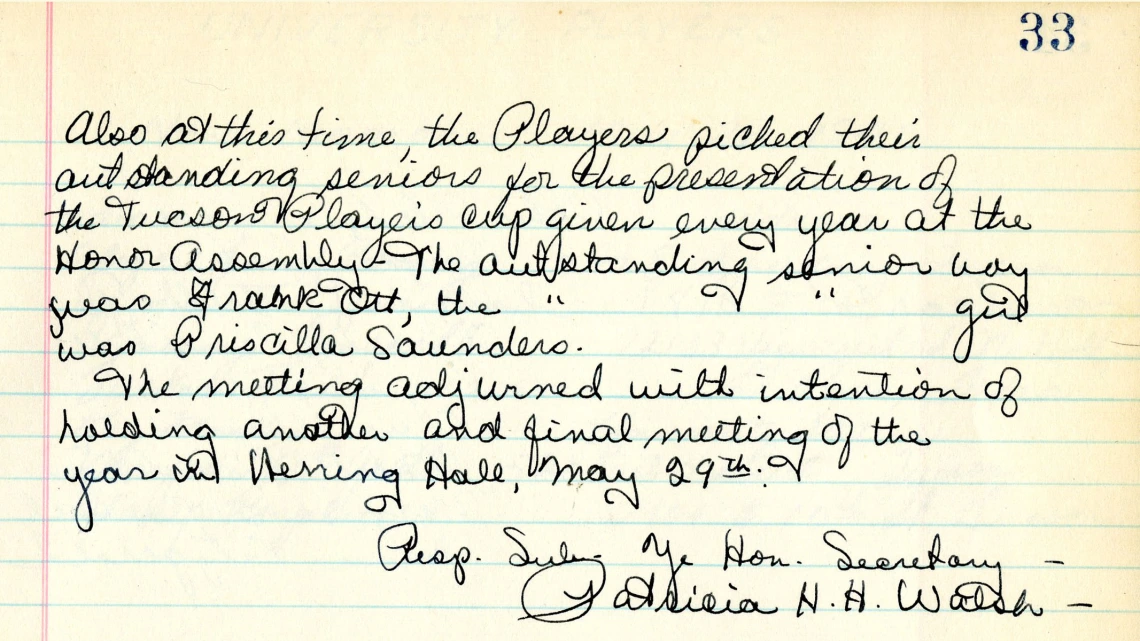 33
Also at this time, the Players picked their
outstanding seniors for the presentation of
the Tucson Players cup given every year at the
Honor Assembly - The outstanding senior boy
was Frank Ott, the " " girl
was Priscilla Saunders.
The meeting adjurned with intention of
holding another and final meeting of the
year in Herring Hall, May 29th.
Resp. Sub- Ye Hon. Secretary -
Patricia H. H. Walsh -